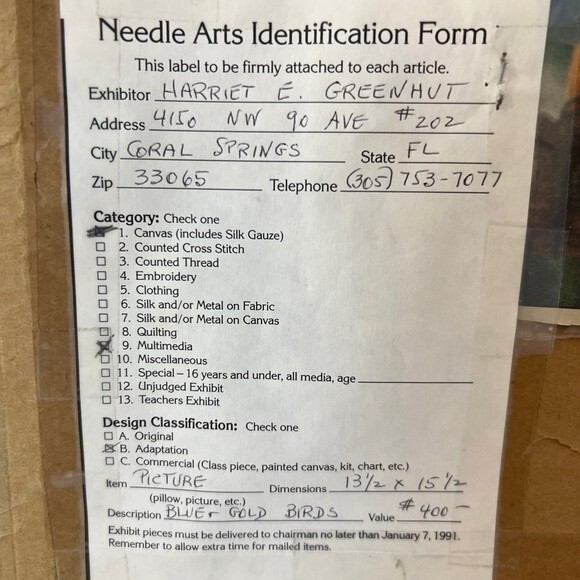 Needle Arts Identification Form
This label to be firmly attached to each article.
Exhibitor HARRIET E. GREENHUT
Address 4150 NW 90 AVE #202
City CORAL SPRINGS State FL
Zip 33065 Telephone (305) 753-7077
Category: Check one
1. Canvas (includes Silk Gauze)
2. Counted Cross Stitch
3. Counted Thread
4. Embroidery
5. Clothing
6. Silk and/or Metal on Fabric
7. Silk and/or Metal on Canvas
8. Quilting
9. Multimedia
10. Miscellaneous
11. Special – 16 years and under, all media, age
12. Unjudged Exhibit
13. Teachers Exhibit
Design Classification: Check one
A. Original
B. Adaptation
C. Commercial (Class piece, painted canvas, kit, chart, etc.)
Item PICTURE Dimensions 13 1/2 x 15 1/2
(pillow, picture, etc.)
Description BLUE + GOLD BIRDS Value $400—
Exhibit pieces must be delivered to chairman no later than January 7, 1991.
Remember to allow extra time for mailed items.